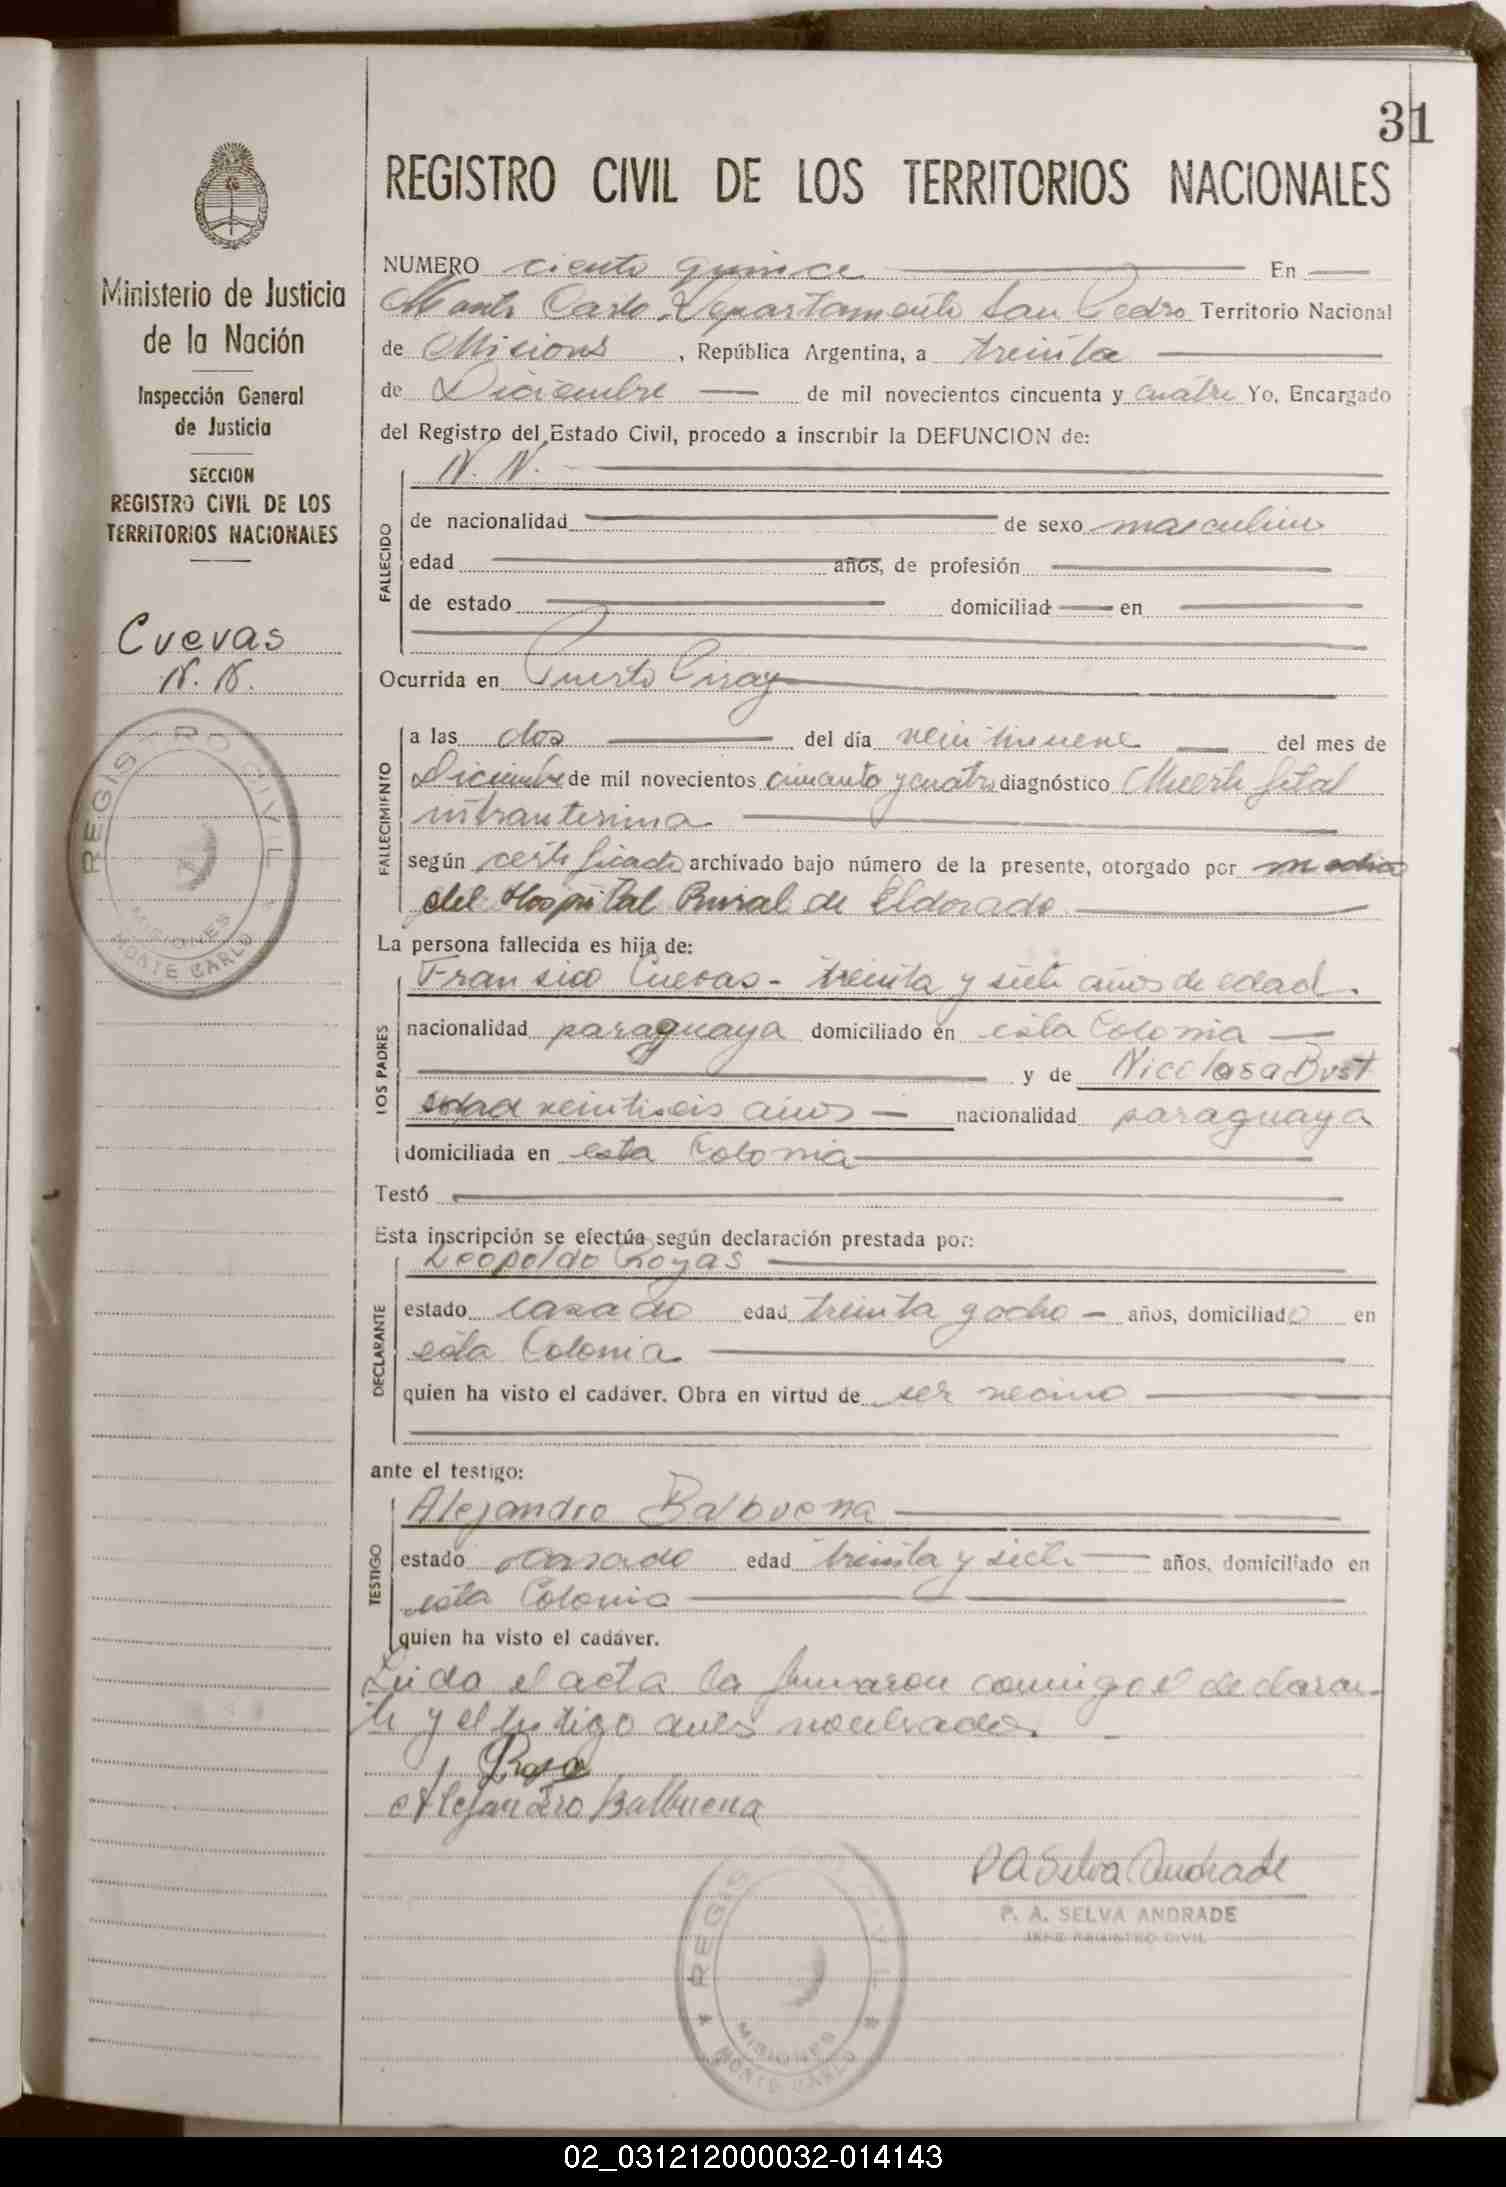 31
Ministerio de Justicia
de la Nación
Inspección General
de Justicia
SECCION
REGISTRO CIVIL DE LOS
TERRITORIOS NACIONALES
Cuevas
N. N.
REGISTRO CIVIL
MISIONES
MONTE CARLO
REGISTRO CIVIL DE LOS TERRITORIOS NACIONALES
NUMERO ciento quince En
Monte Carlo Departamento San Pedro Territorio Nacional
de Misiones, República Argentina, a treinta
de Diciembre de mil novecientos cincuenta y cuatro Yo, Encargado
del Registro del Estado Civil, procedo a inscribir la DEFUNCION de:
N. N.
FALLECIDO
de nacionalidad de sexo masculino
edad años, de profesión
de estado domiciliad en
Ocurrida en Puerto Piray
FALLECIMIENTO
a las dos del día veintinueve del mes de
Diciembre de mil novecientos cincuenta y cuatro diagnóstico Muerte fetal
intrauterina
según certificado archivado bajo número de la presente, otorgado por medico
del Hospital Rural de Eldorado
La persona fallecida es hija de:
LOS PADRES
Fransico Cuevas - treinta y siete años de edad.
nacionalidad paraguaya domiciliado en esta Colonia
y de Nicolasa Bust
edad veintiseis años nacionalidad paraguaya
domiciliada en esta Colonia
Testó
Esta inscripción se efectúa según declaración prestada por:
DECLARANTE
Leopoldo Royas
estado casado edad treinta y ocho años, domiciliado en
esta Colonia
quien ha visto el cadáver. Obra en virtud de ser vecino
ante el testigo:
TESTIGO
Alejandro Balbuena
estado casado edad treinta y siete años, domiciliado en
esta Colonia
quien ha visto el cadáver.
Leida el acta la firmaron conmigo el declaran-
te y el testigo antes nombrados.
Alejandro Balbuena
P A Selva Andrade
P. A. SELVA ANDRADE
JEFE REGISTRO CIVIL
REGISTRO CIVIL
MISIONES
MONTE CARLO
02_031212000032-014143